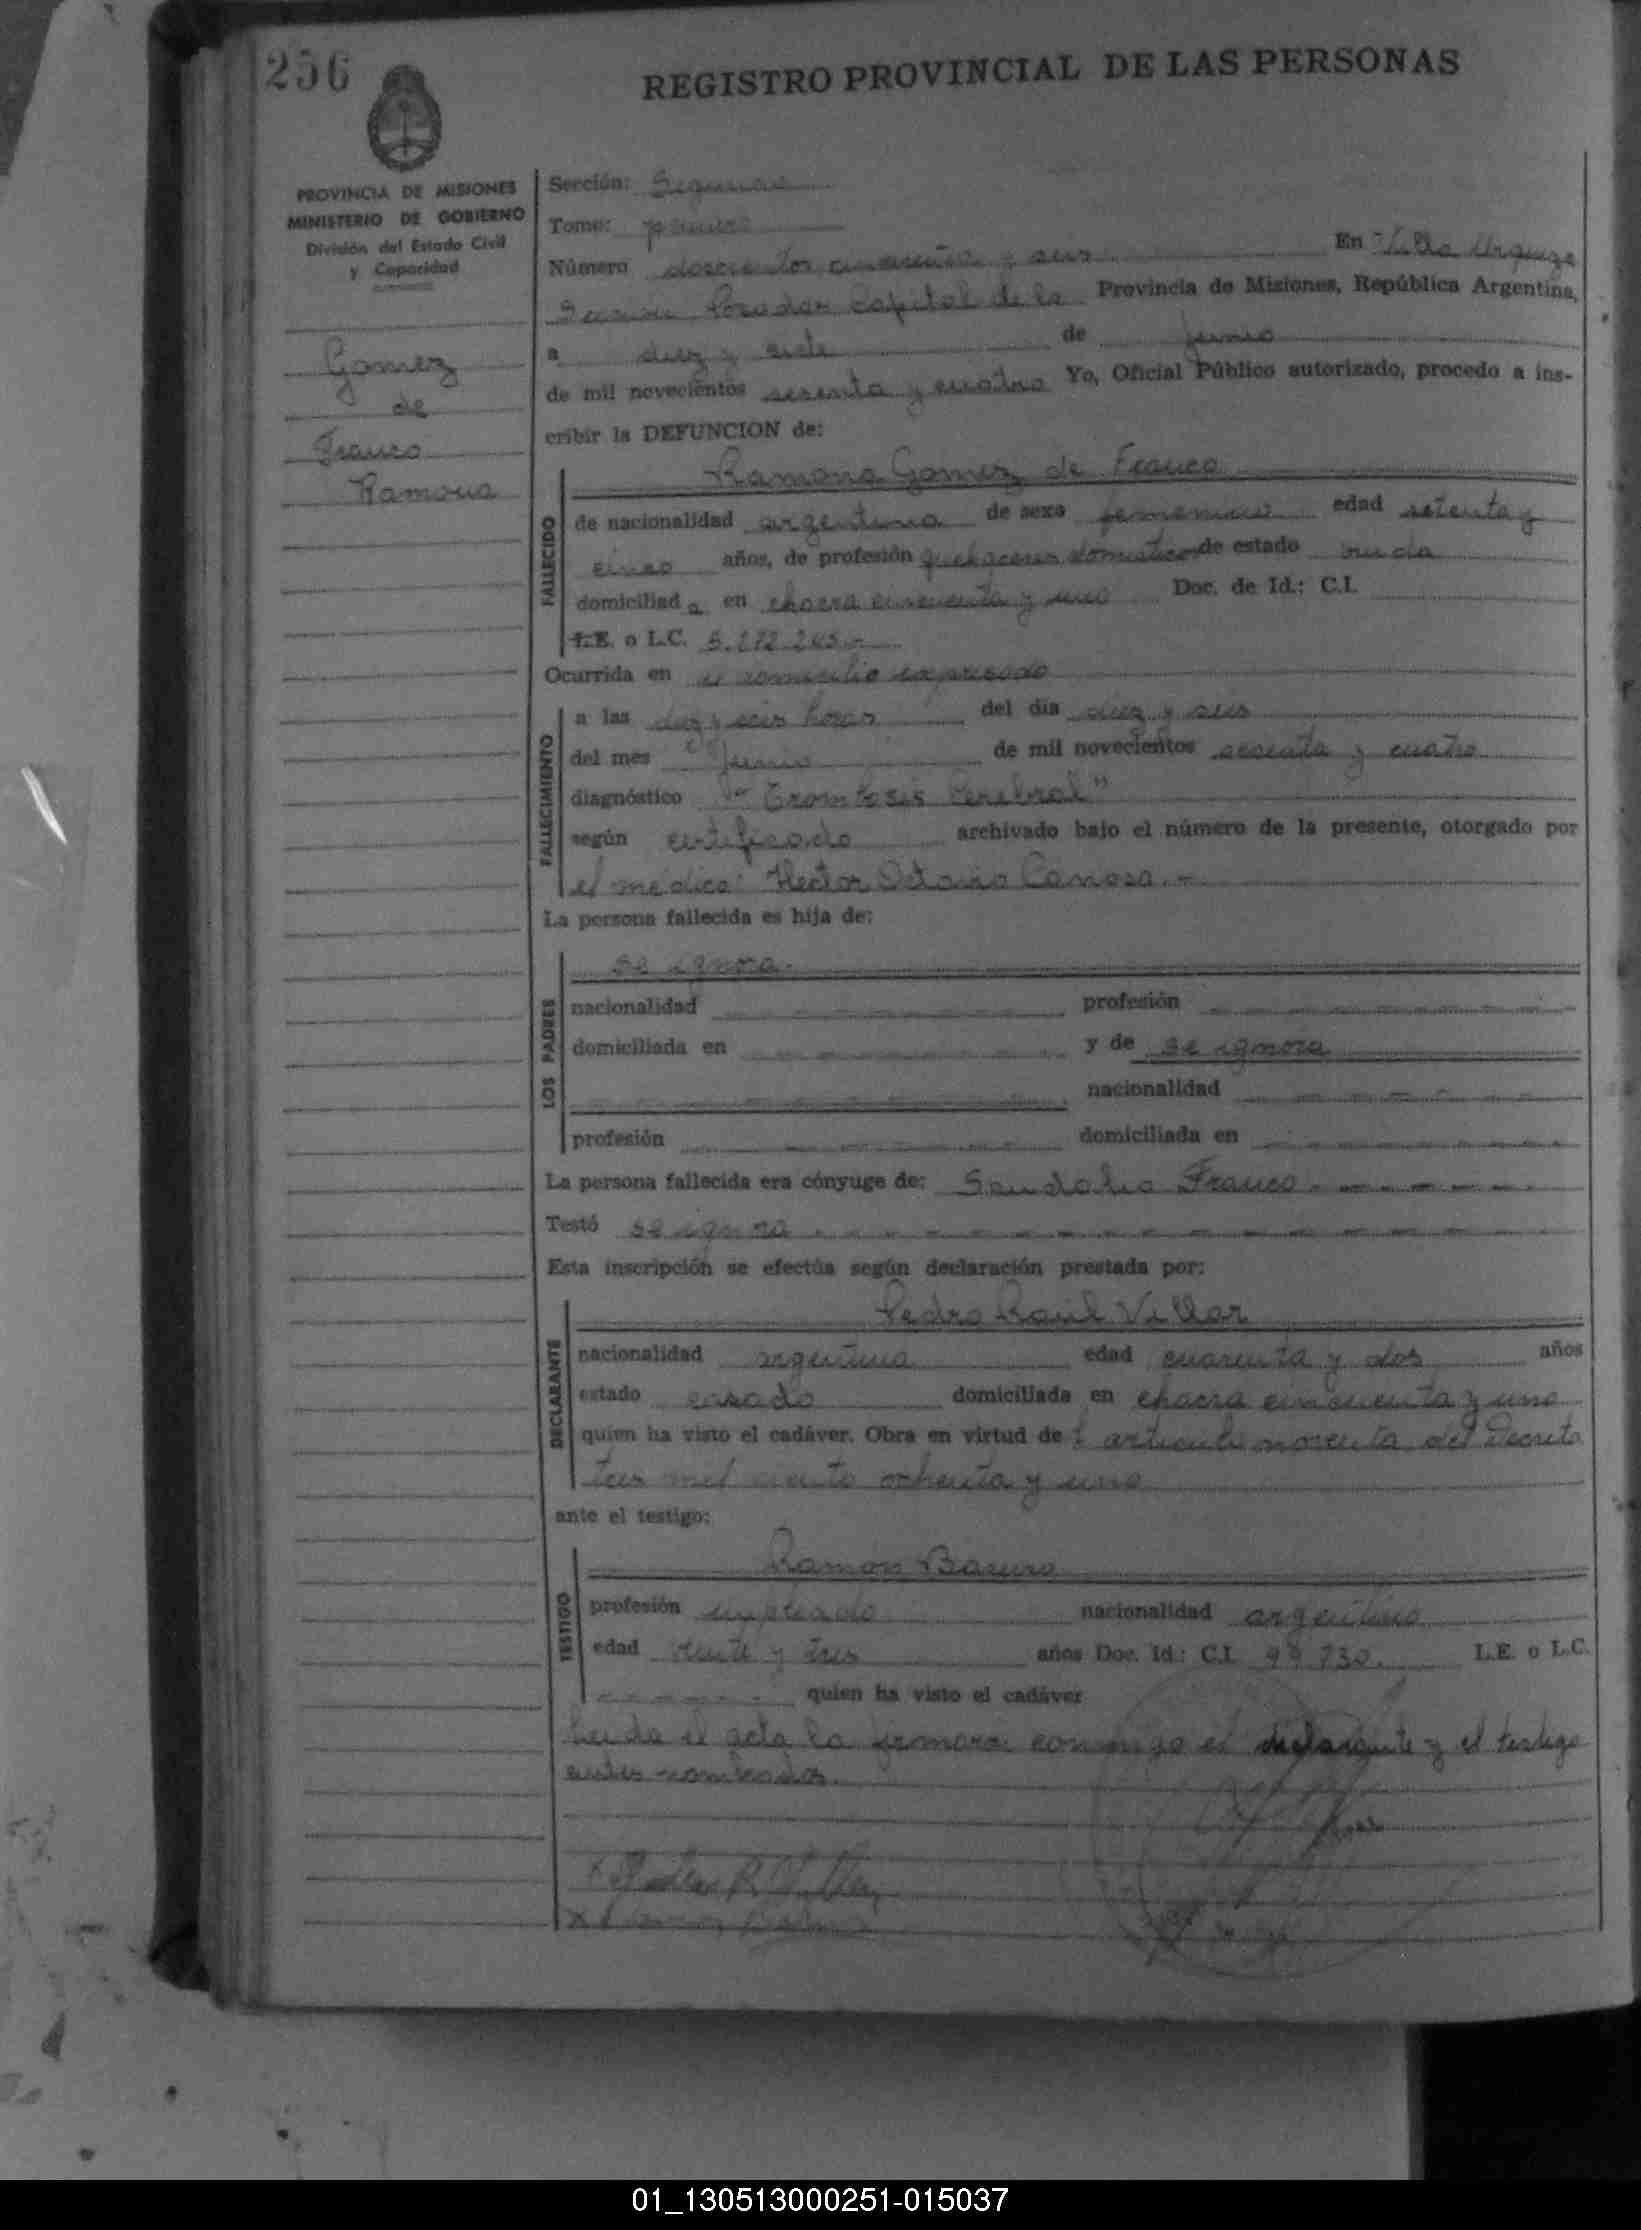 256
REGISTRO PROVINCIAL DE LAS PERSONAS
PROVINCIA DE MISIONES
MINISTERIO DE GOBIERNO
División del Estado Civil
y Capacidad
Gomez
de
Franco
Ramona
Sección: Segunda
Tomo: primero
Número doscientos cincuenta y seis En Villa Urquiza
Sección Posadas Capital de la Provincia de Misiones, República Argentina,
a diez y siete de junio
de mil novecientos sesenta y cuatro Yo, Oficial Público autorizado, procedo a ins-
cribir la DEFUNCION de:
FALLECIDO
Ramona Gomez de Franco
de nacionalidad argentina de sexo femenino edad setenta y
cinco años, de profesión quehaceres domesticos de estado viuda
domiciliad a en chacra cincuenta y uno Doc. de Id.: C.I.
L.E. o L.C. 5.272.245.-
Ocurrida en el domicilio expresado
FALLECIMIENTO
a las diez y seis horas del día diez y seis
del mes junio de mil novecientos sesenta y cuatro
diagnóstico "Trombosis Cerebral"
según certificado archivado bajo el número de la presente, otorgado por
el médico: Hector Octavio Canosa.-
La persona fallecida es hija de:
LOS PADRES
se ignora.
nacionalidad profesión
domiciliada en y de se ignora
nacionalidad
profesión domiciliada en
La persona fallecida era cónyuge de: Sandalio Franco
Testó se ignora
Esta inscripción se efectúa según declaración prestada por:
DECLARANTE
Pedro Raúl Villar
nacionalidad argentina edad cuarenta y dos años
estado casado domiciliada en chacra cincuenta y uno
quien ha visto el cadáver. Obra en virtud de l articulo noventa del Decreto
tres mil ciento ochenta y uno
ante el testigo:
TESTIGO
Ramon
profesión empleado nacionalidad argentino
edad veinte y tres años Doc. Id.: C.I. 99.730. L.E. o L.C.
quien ha visto el cadáver
Leida el acta la firmara conmigo el declarante y el testigo
antes nombrados.
01_130513000251-015037